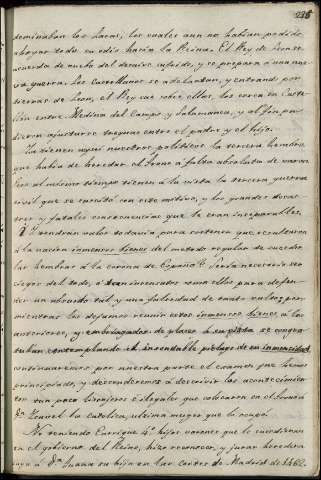 236
dominaban los Laras, los cuales aun no habian podido
ahogar todo su odio hacia la Reina. El Rey de Leon se
acuerda de nuebo del derecho sufrido, y se prepara á una nue-
va guerra. Los Castellanos se adelantan, y entrando por
tierras de Leon, el Rey cae sobre ellos, los cerca en Caste-
llon entre Medina del Campo y Salamanca, y al fin pu-
dieron ajustarse treguas entre el padre y el hijo.
Ya tienen aqui nuestros politicos la tercera hembra
que habia de heredar el trono á falta absoluta de varon
y al mismo tiempo tienen á la vista la tercera guerra
civil que se suscitó con este motivo, y los grandes desas-
tres y fatales consecuencias que le eran inseparables.
¿Y tendrán valor todavia para sostener que resultaron
á la nacion inmensos bienes del metodo regular de suceder
las hembras á la corona de España? Seria necesario ser
ciegos del todo, ó tan insensatos como ellos para defen-
der un absurdo tal, y una falsedad de tanto bulto; pero
mientras los dejamos reunir estos inmensos bienes á los
anteriores, y embriagados de placer á su vista se compla-
zcan contemplando el insondable pielago de su inmensidad,
continuaremos por nuestra parte el examen que hemos
principiado, y descenderemos á describir los acontecimien-
tos un poco lisonjeros é ilegales que colocaron en el trono á
Dª Ysabel la Catolica, ultima muger que lo ocupó.
No teniendo Enrrique 4º hijos varones que le sucedieran
en el gobierno del Reino, hizo reconocer, y jurar heredera
suya á Dª Juana su hija en las cortes de Madrid de 1462.